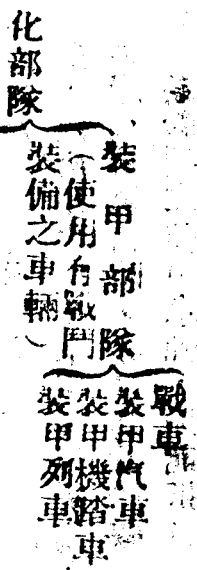 化部隊
裝甲部隊
（使用有戰鬥
裝備之車輛）
戰車
裝甲汽車
裝甲機踏車
裝甲列車